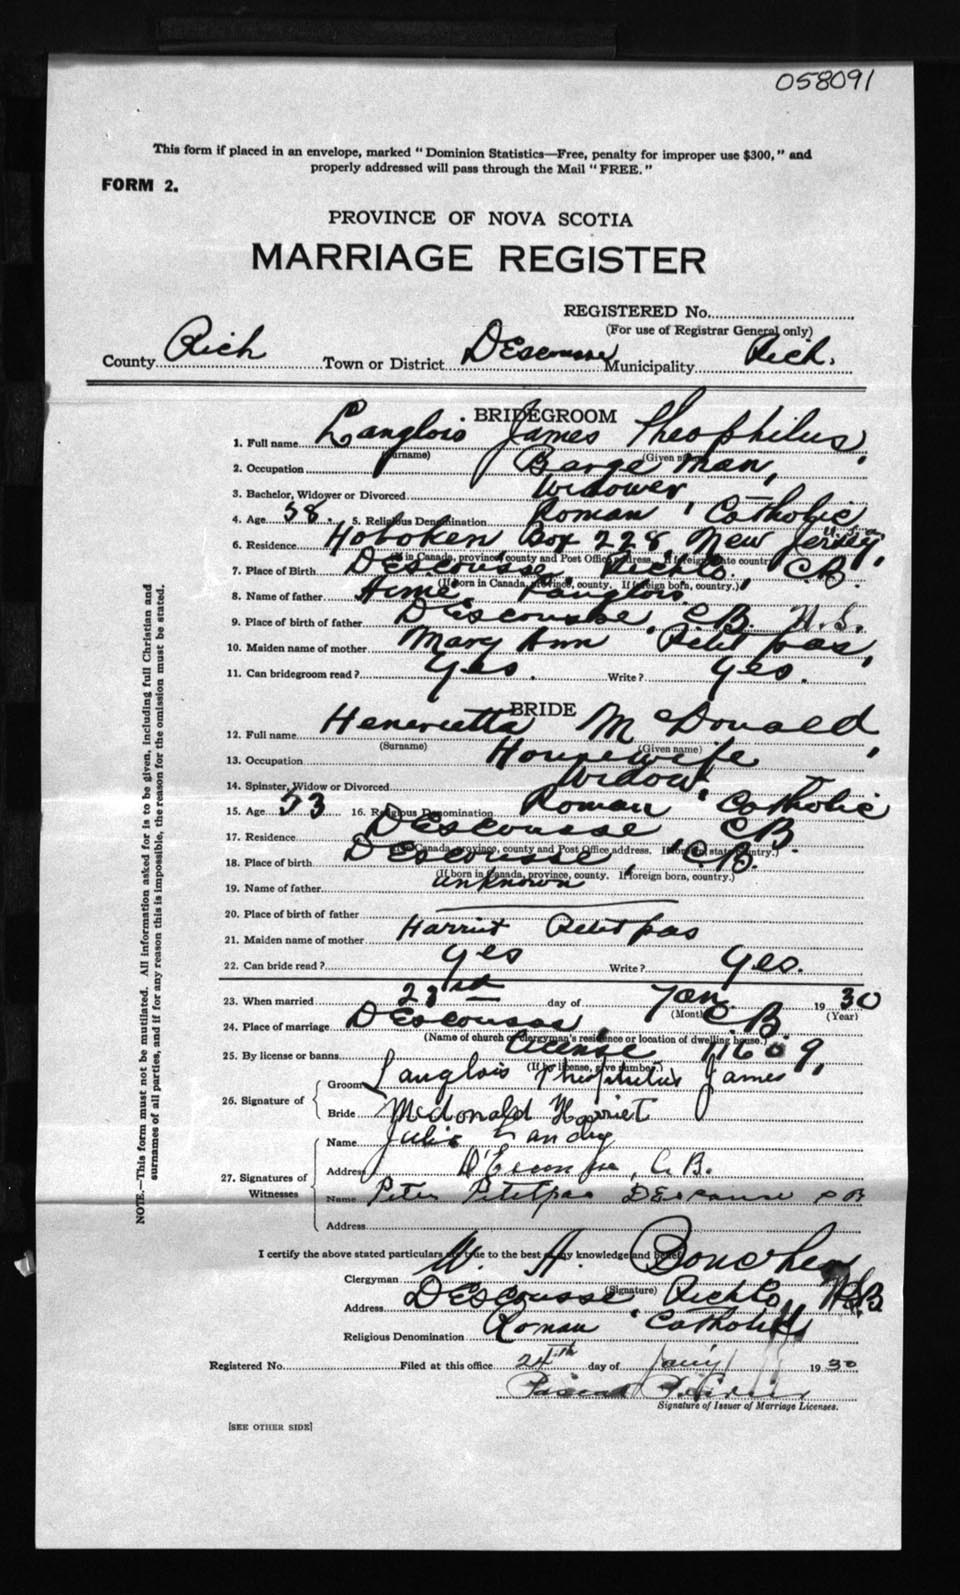 058091
This form if placed in an envelope, marked "Dominion Statistics—Free, penalty for improper use $300," and
properly addressed will pass through the Mail "FREE."
FORM 2.
PROVINCE OF NOVA SCOTIA
MARRIAGE REGISTER
REGISTERED No.
(For use of Registrar General only)
County Rich Town or District DEscousse Municipality Rich.
BRIDEGROOM
1. Full name Langlois James Theophilus,
(Surname) (Given name)
2. Occupation Barge man,
3. Bachelor, Widower or Divorced Widower
4. Age 58. 5. Religious Denomination Roman Catholic
6. Residence Hoboken Box 228, New Jersey,
(If in Canada, province, county and Post Office address. If foreign state country.)
7. Place of Birth DEscousse, Rich Co., C.B.
(If born in Canada, province, county. If foreign born, country.)
8. Name of father Aime Langlois
9. Place of birth of father DEscousse, C.B. N.S.
10. Maiden name of mother Mary Ann Petit pas,
11. Can bridegroom read? Yes. Write? Yes.
BRIDE
12. Full name Henerietta McDonald,
(Surname) (Given name)
13. Occupation Housewife
14. Spinster, Widow or Divorced Widow,
15. Age 53 16. Religious Denomination Roman Catholic
17. Residence DEscousse, C.B.
(If in Canada, province, county and Post Office address. If foreign state country.)
18. Place of birth DEscousse, C.B.
(If born in Canada, province, county. If foreign born, country.)
19. Name of father unknown
20. Place of birth of father
21. Maiden name of mother Harriet Petit pas
22. Can bride read? yes Write? yes.
23. When married day of Jan 1930
(Month) (Year)
24. Place of marriage DEscousse, C.B.
(Name of church or clergyman's residence or location of dwelling house.)
25. By license or banns License 11609,
(If by license, give number.)
26. Signature of
Groom Langlois Theophilus James
Bride Mcdonald Harriet
27. Signatures of Witnesses
Name Julie Landry
Address D'Escousse, C.B.
Name Peter Petitpas DEscousse C B
Address
I certify the above stated particulars are true to the best of my knowledge and belief.
Clergyman W. A.
(Signature)
Address DEscousse, Rich Co,
Religious Denomination Roman Catholic
Registered No. Filed at this office 24th day of Jany 1930
Signature of Issuer of Marriage Licenses.
[SEE OTHER SIDE]
NOTE.—This form must not be mutilated. All information asked for is to be given, including full Christian and
surnames of all parties, and if for any reason this is impossible, the reason for the omission must be stated.